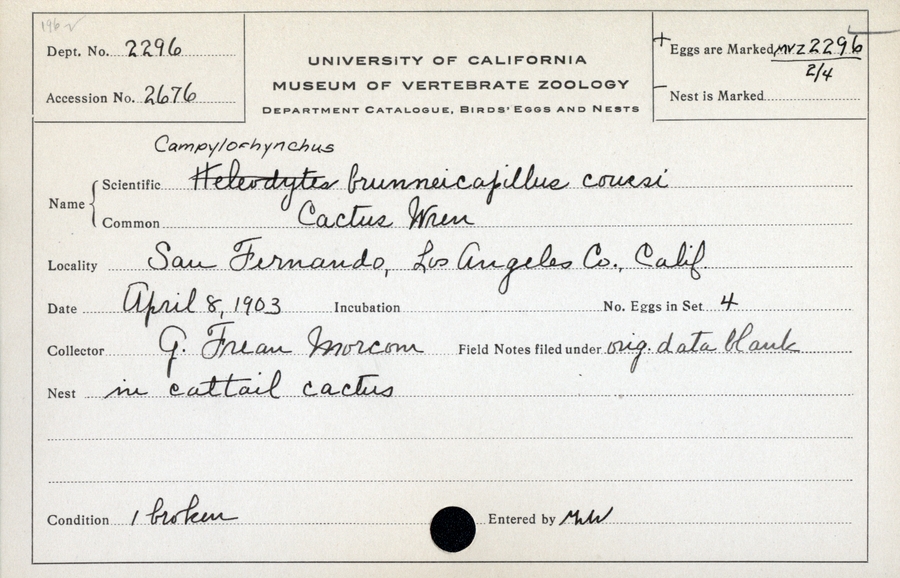 196
Dept. No. 2296
Accession No. 2676
UNIVERSITY OF CALIFORNIA
MUSEUM OF VERTEBRATE ZOOLOGY
DEPARTMENT CATALOGUE, BIRDS' EGGS AND NESTS
+ Eggs are Marked MVZ 2296
2/4
– Nest is Marked
Campylorhynchus
Name { Scientific Heleodytes brunneicapillus couesi
Common Cactus Wren
Locality San Fernando, Los Angeles Co., Calif.
Date April 8, 1903 Incubation No. Eggs in Set 4
Collector G. Frean Morcom Field Notes filed under orig. data blank
Nest in cattail cactus
Condition 1 broken Entered by